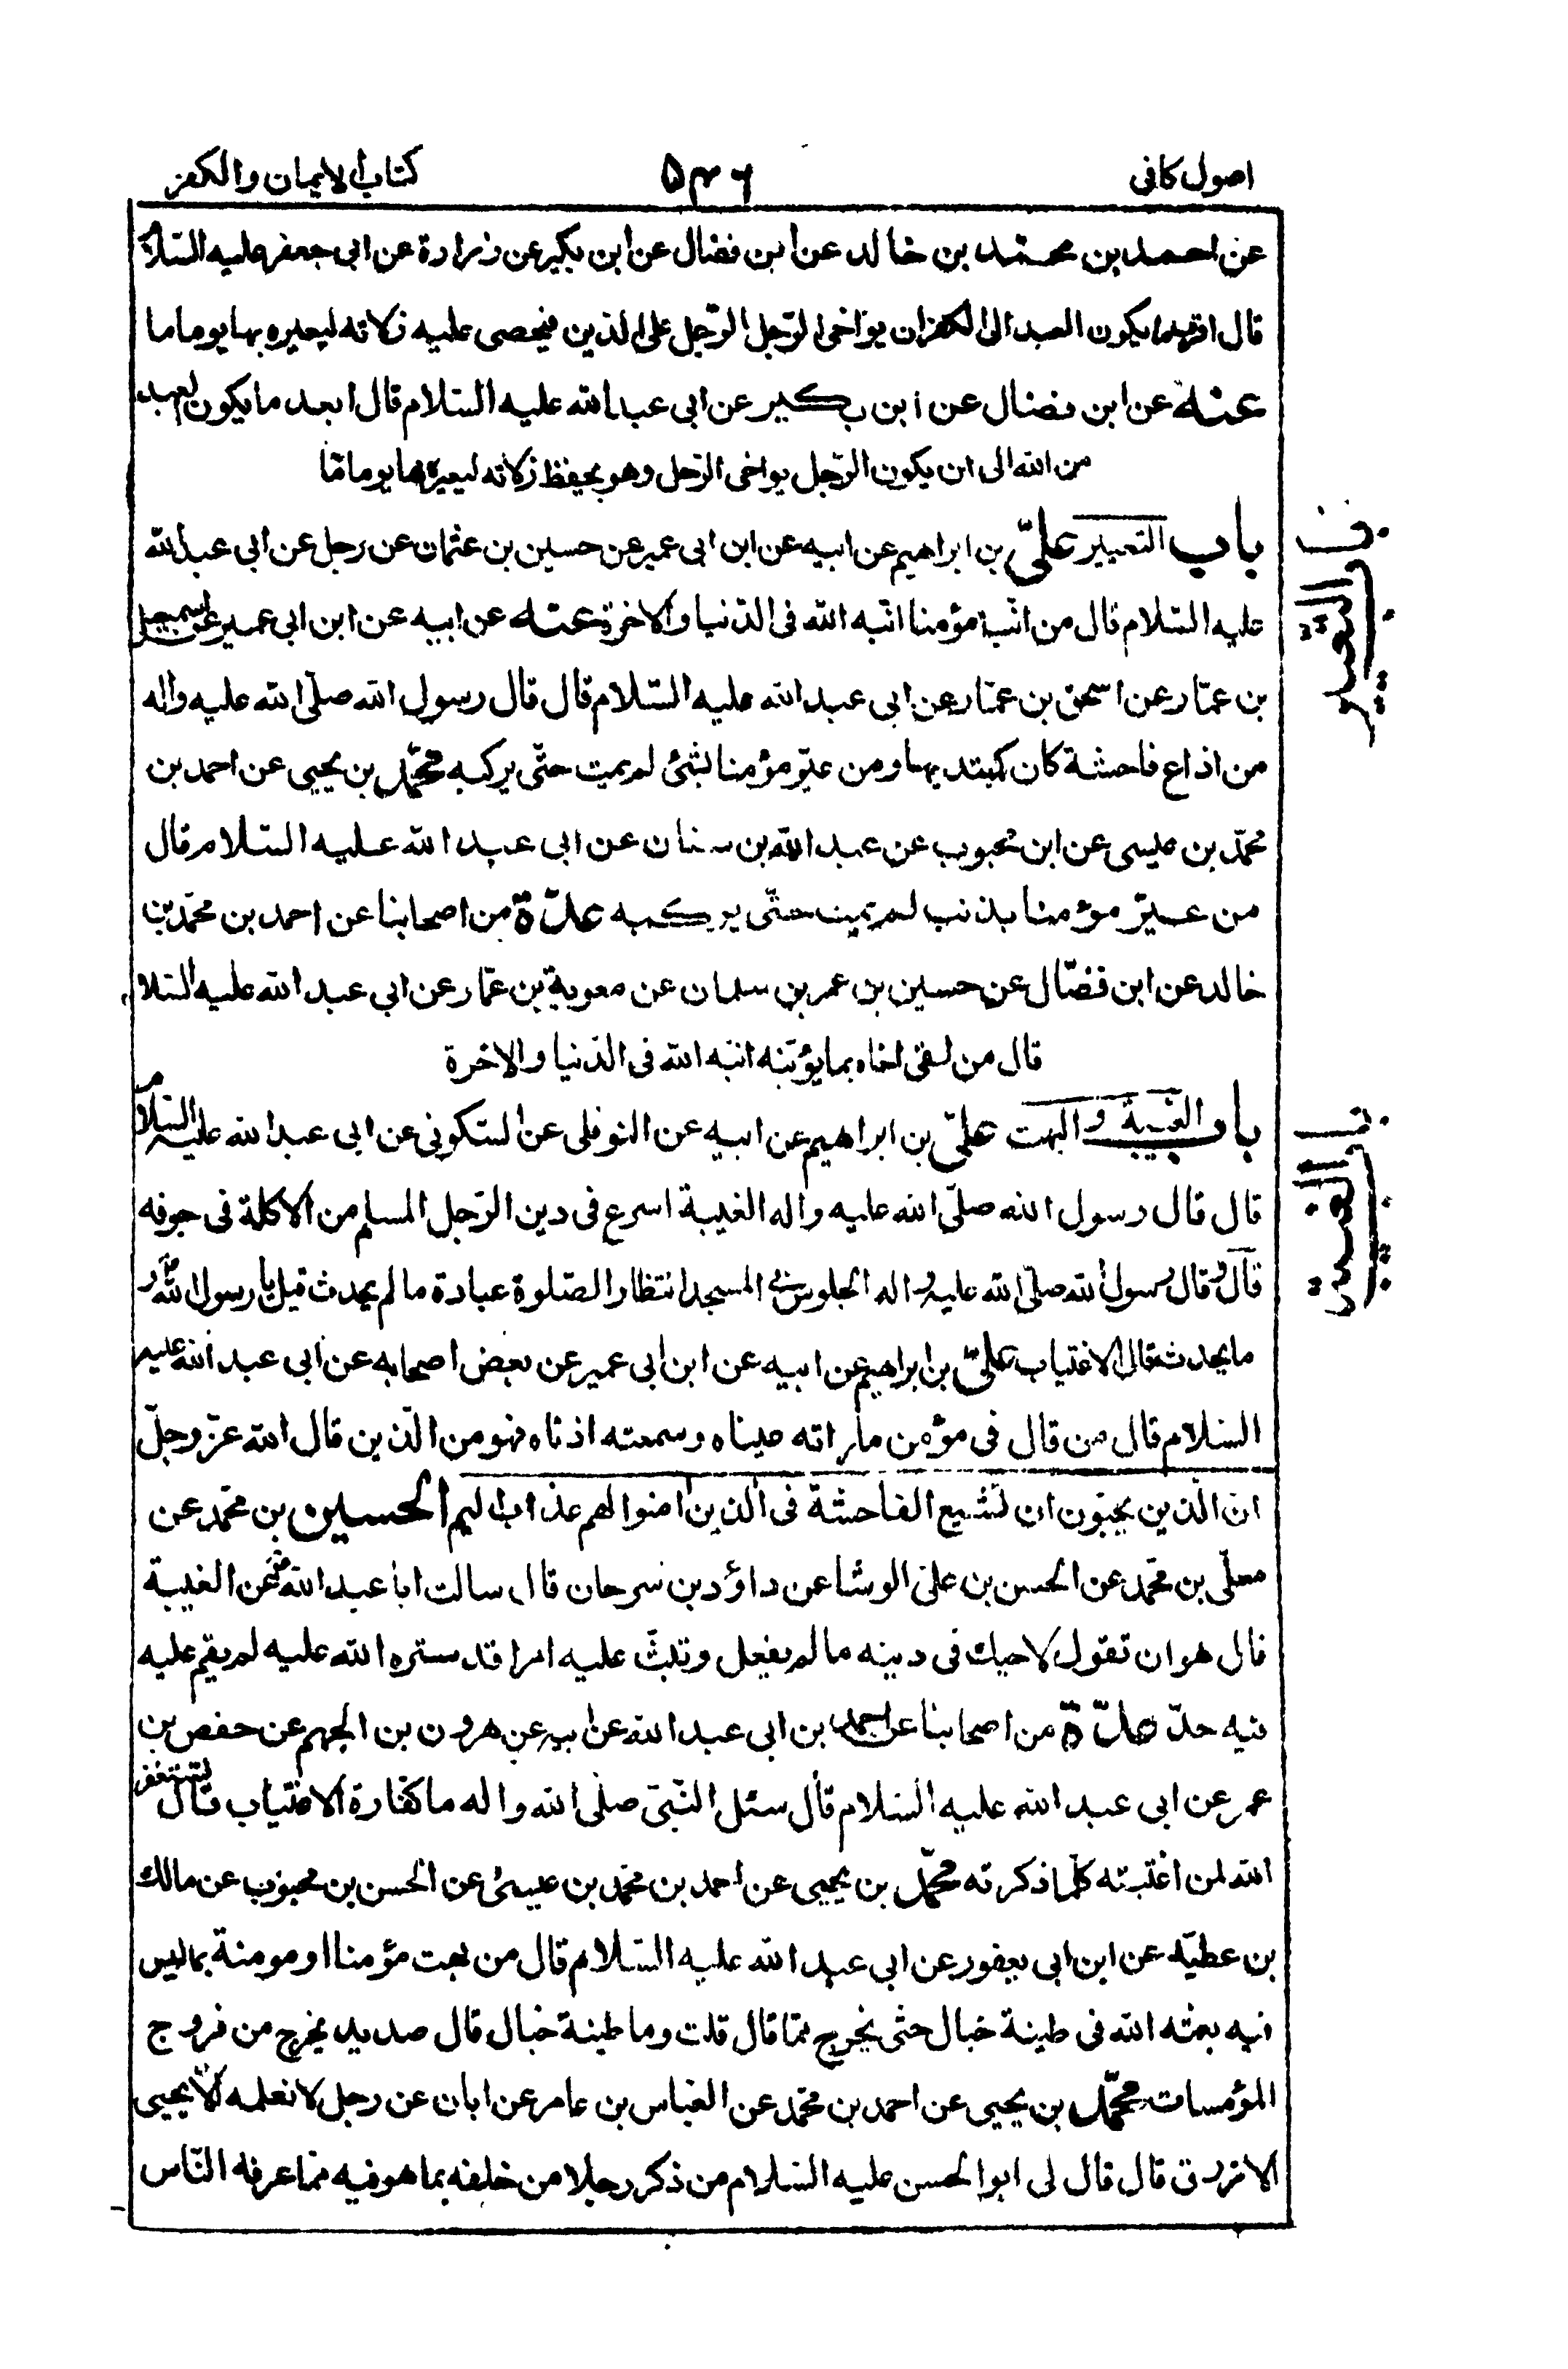 اصول كافى
۵۴۶
كتاب الايمان والكفر
عن احمد بن محمّد بن خالد عن ابن فضال عن ابن بكير عن زرارة عن ابى جعفر عليه السّلام
قال اقرب ما يكون العبد الى الكفر ان يواخى الرّجل الرّجل على الدين فيحصى عليه زلاته ليعيره بها يوما ما
عنه عن ابن فضال عن ابن بكير عن ابى عبد الله عليه السّلام قال ابعد ما يكون العبد
من الله الى ان يكون الرّجل يواخى الرّجل وهو يحفظ زلاته ليعيره بها يوما مّا
باب التعيير علىّ بن ابراهيم عن ابيه عن ابن ابى عمير عن حسين بن عثمان عن رجل عن ابى عبد الله
عليه السّلام قال من انّب مؤمنا انّبه الله فى الدّنيا والاخرة عنه عن ابيه عن ابن ابى عمير عن اسمعيل
بن عمّار عن اسحق بن عمّار عن ابى عبد الله عليه السّلام قال قال رسول الله صلّى الله عليه واله
من اذاع فاحشة كان كمبتديها ومن عيّر مؤمنا بشئ لم يمت حتّى يركبه محمّد بن يحيى عن احمد بن
محمّد بن عيسى عن ابن محبوب عن عبد الله بن سنان عن ابى عبد الله عليه السّلام قال
من عيّر مؤمنا بذنب لم يمت حتّى يركبه عدّة من اصحابنا عن احمد بن محمّد بن
خالد عن ابن فضّال عن حسين بن عمر بن سلمان عن معوية بن عمّار عن ابى عبد الله عليه السّلا
قال من لقى اخاه بما يؤنّبه انّبه الله فى الدّنيا والاخرة
باب الغيبة والبهت علىّ بن ابراهيم عن ابيه عن النوفلى عن السّكونى عن ابى عبد الله عليه السّلام
قال قال رسول الله صلّى الله عليه واله الغيبة اسرع فى دين الرّجل المسلم من الاكلة فى جوفه
قال وقال رسول الله صلّى الله عليه واله الجلوس فى المسجد انتظار الصّلوة عبادة ما لم يحدث قيل يا رسول الله و
ما يحدث قال الاغتياب علىّ بن ابراهيم عن ابيه عن ابن ابى عمير عن بعض اصحابه عن ابى عبد الله عليه
السّلام قال من قال فى مؤمن ما راته عيناه وسمعته اذناه فهو من الّذين قال الله عزّ وجلّ
انّ الّذين يحبّون ان تشيع الفاحشة فى الّذين امنوا لهم عذاب اليم الحسين بن محمّد عن
معلّى بن محمّد عن الحسن بن على الوشا عن داؤد بن سرحان قال سالت ابا عبد الله عن الغيبة
قال هو ان تقول لاخيك فى دينه ما لم يفعل وتبثّ عليه امرا قد ستره الله عليه لم يقم عليه
فيه حدّ عدّة من اصحابنا عن احمد بن ابى عبد الله عن ابيه عن هرون بن الجهم عن حفص بن
عمر عن ابى عبد الله عليه السّلام قال سئل النّبىّ صلّى الله واله ما كفّارة الاغتياب قال تستغفر
الله لمن اغتبته كلّما ذكرته محمّد بن يحيى عن احمد بن محمّد بن عيسى عن الحسن بن محبوب عن مالك
بن عطيّة عن ابن ابى يعفور عن ابى عبد الله عليه السّلام قال من بهت مؤمنا او مومنة بما ليس
فيه بعثه الله فى طينة خبال حتّى يخرج ممّا قال قلت وما طينة خبال قال صديد يخرج من فروج
المؤمسات محمّد بن يحيى عن احمد بن محمّد عن العبّاس بن عامر عن ابان عن رجل لا نعلمه الّا يحيى
الازرق قال قال لى ابو الحسن عليه السّلام من ذكر رجلا من خلفه بما هو فيه ممّا عرفه النّاس
باب التعيير
باب الغيبة